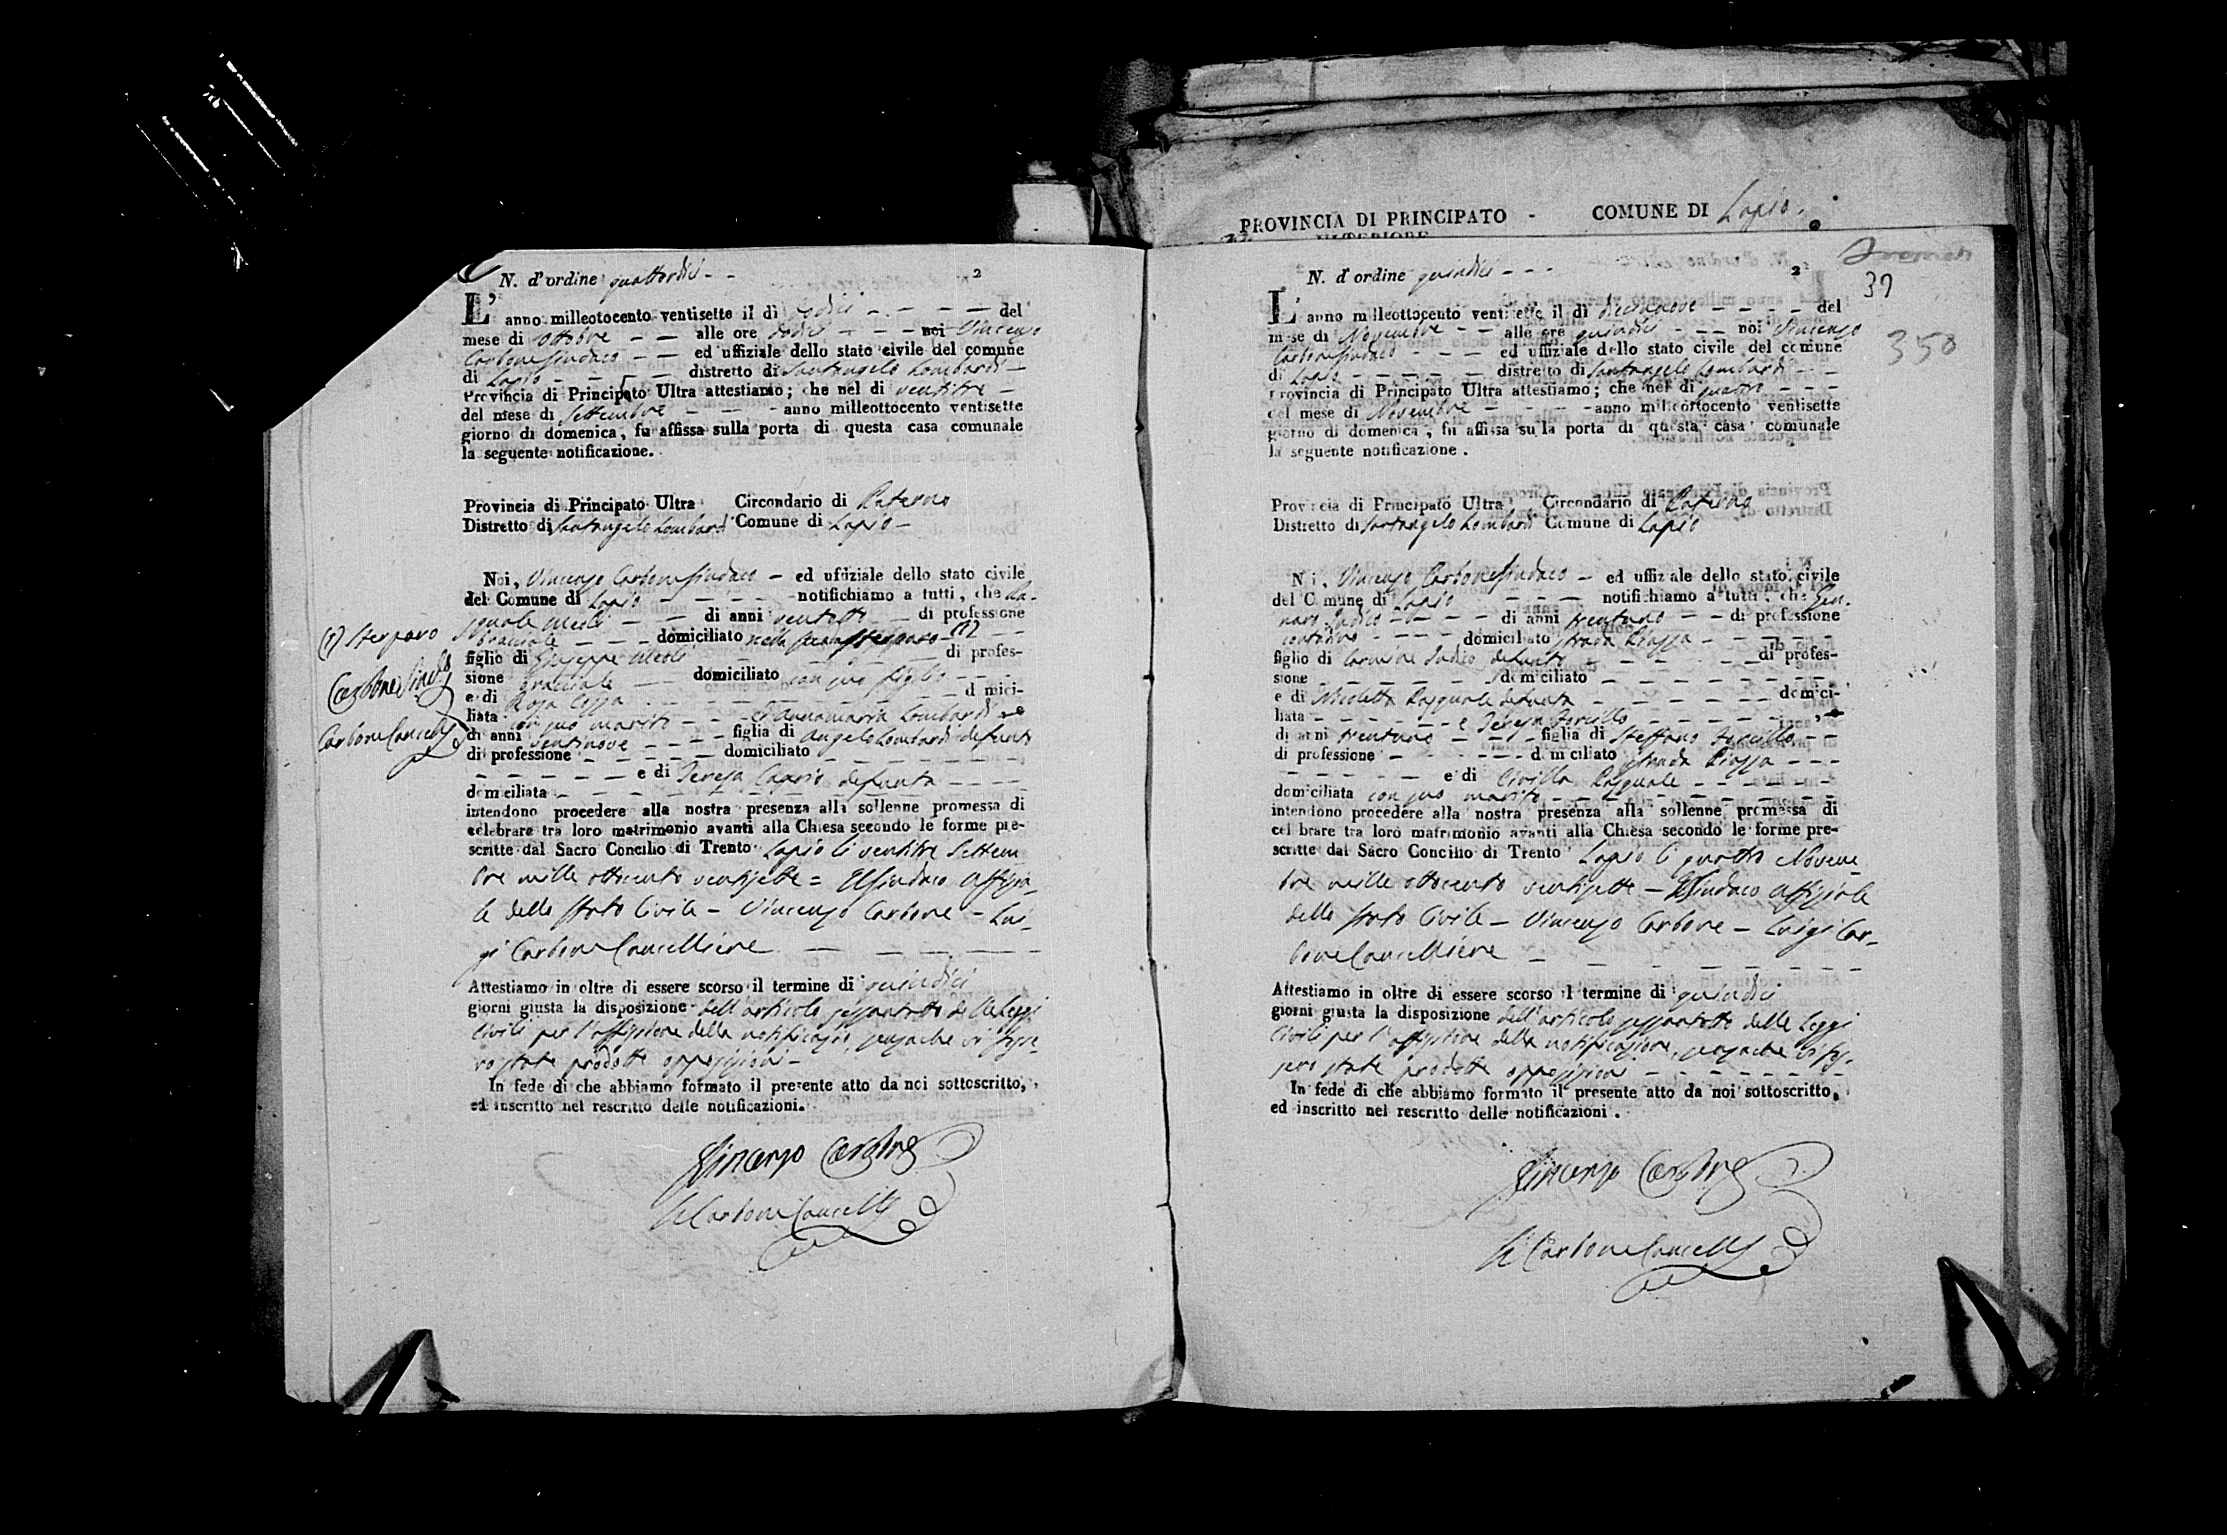 PROVINCIA DI PRINCIPATO - COMUNE DI Lapio.
ULTERIORE
N. d'ordine quattordici - -
2
L'anno milleottocento ventisette il dì dodici - - - - - del
mese di Ottobre - - alle ore dodici - - - noi Vincenzo
Carbone Sindaco - - ed uffiziale dello stato civile del comune
di Lapio - - - - - distretto di Santangelo Lombardi -
Provincia di Principato Ultra attestiamo; che nel dì ventitre -
del mese di Settembre - - - - anno milleottocento ventisette
giorno di domenica, fu affissa sulla porta di questa casa comunale
la seguente notificazione.
Provincia di Principato Ultra Circondario di Paterno
Distretto di Santangelo Lombardi Comune di Lapio -
Noi, Vincenzo Carbone Sindaco - ed uffiziale dello stato civile
del Comune di Lapio - - - - - notifichiamo a tutti, che Pa-
squale - - di anni ventotto - - di professione
bracciale - - - domiciliato nella strada (1) - -
figlio di Giuseppe - - - - - di profes-
sione bracciale - - domiciliato con suo figlio - -
e di Rosa - - - - - domici-
liata con suo marito - - - e Annamaria Lombardi - e
di anni ventinove - - - - figlia di Angelo Lombardi defunto
di professione - - - - - domiciliato - - - - - -
- - - - - - e di Teresa defunta - - - -
domciliata - - - - - - - - - - - -
intendono procedere alla nostra presenza alla sollenne promessa di
celebrare tra loro matrimonio avanti alla Chiesa secondo le forme pre-
scritte dal Sacro Concilio di Trento Lapio li ventitre Settem
bre mille ottocento ventisette = Il Sindaco Uffizia-
le dello Stato Civile - Vincenzo Carbone - Lui-
gi Carbone Cancelliere - - - - - -
Attestiamo in oltre di essere scorso il termine di quindici
giorni giusta la disposizione dell'articolo sessantotto delle Leggi
Civili per l'affissione della notificazione, senzache vi fosse-
ro state prodotte opposizioni -
In fede di che abbiamo formato il presente atto da noi sottoscritto,
ed inscritto nel rescritto delle notificazioni.
Vincenzo Carbone
L Carbone Cancellre
(1) Sterparo
Carbone Sindo
Carbone Cancellre
N. d'ordine quindici - - -
2
39
350
L'anno milleottocento ventisette il dì diecinnove - - - - del
mese di Novembre - - alle ore quindici - - - noi Vincenzo
Carbone Sindaco - - - ed uffiziale dello stato civile del comune
di Lapio - - - - - - distretto di Santangelo Lombardi - -
Provincia di Principato Ultra attestiamo; che nel dì quattro - - -
del mese di Novembre - - - - anno milleottocento ventisette
giorno di domenica, fu affissa sulla porta di questa casa comunale
la seguente notificazione.
Provincia di Principato Ultra Circondario di Paterno
Distretto di Santangelo Lombardi Comune di Lapio
Noi, Vincenzo Carbone Sindaco - ed uffiziale dello stato civile
del Comune di Lapio - - - - notifichiamo a tutti, che Gen-
naro Iudico - - - - di anni trentuno - - di professione
contadino - - - - domiciliato strada Piazza - - - - -
figlio di Carmine Iudico defunto - - - - - - di profes-
sione - - - - - - - domiciliato - - - - - - - -
e di Nicoletta Pasquale defunta - - - - - - - domici-
liata - - - - - - - e Teresa Forcillo - - - - -
di anni trentuno - - - - figlia di Steffano Forcillo - -
di professione - - - - - - domiciliato strada Piazza - - -
- - - - - - e di Civilla Pasquale - - - - -
domiciliata con suo marito - - - - - - - - -
intendono procedere alla nostra presenza alla sollenne promessa di
celebrare tra loro matrimonio avanti alla Chiesa secondo le forme pre-
scritte dal Sacro Concilio di Trento Lapio li quattro Novem-
bre mille ottocento ventisette - Il Sindaco Uffiziale
dello Stato Civile - Vincenzo Carbone - Luigi Car-
bone Cancelliere - - - - - - - -
Attestiamo in oltre di essere scorso il termine di quindici
giorni giusta la disposizione dell'articolo sessantotto delle Leggi
Civili per l'affissione della notificazione, senzache vi fos-
sero state prodotte opposizioni - - - - - - -
In fede di che abbiamo formato il presente atto da noi sottoscritto,
ed inscritto nel rescritto delle notificazioni.
Vincenzo Carbone
L Carbone Cancellre